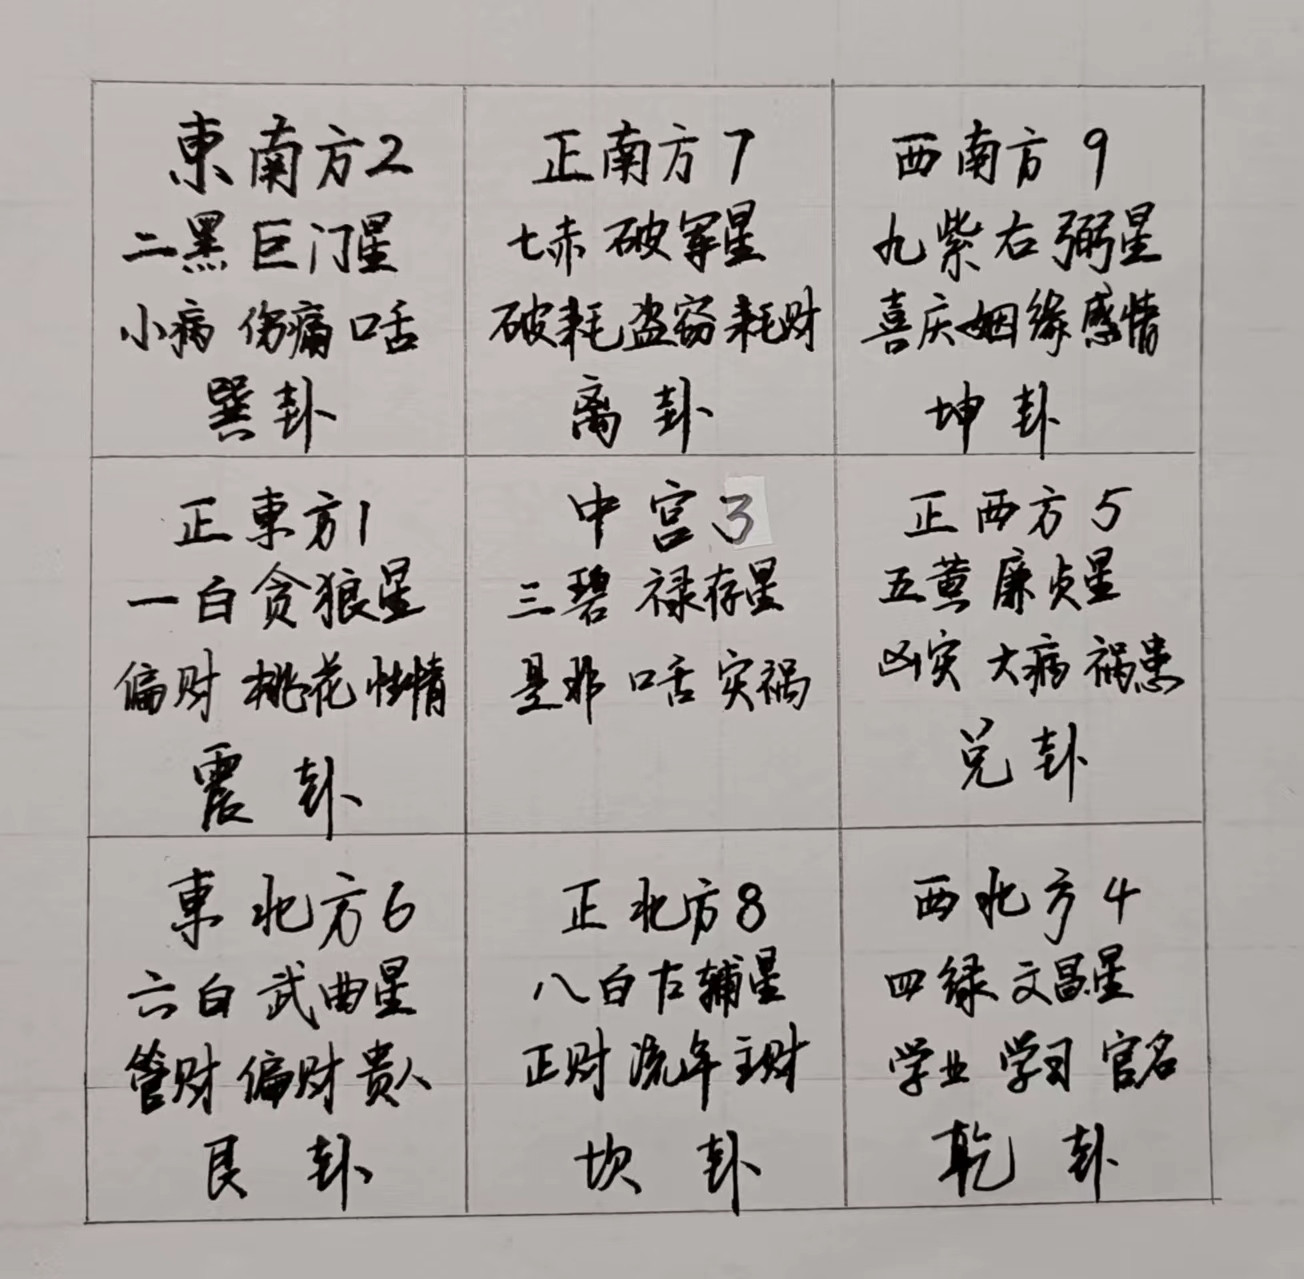 東南方2
二黑巨门星
小病 伤痛 口舌
巽卦
正南方7
七赤破军星
破耗盗窃耗财
离卦
西南方9
九紫右弼星
喜庆姻缘感情
坤卦
正東方1
一白贪狼星
偏财 桃花 性情
震卦
中宫3
三碧 禄存星
是非 口舌 灾祸
正西方5
五黄廉贞星
凶灾 大病 祸患
兑卦
東北方6
六白武曲星
管财 偏财 贵人
艮卦
正北方8
八白左辅星
正财 流年 主财
坎卦
西北方4
四绿文昌星
学业 学习 官名
乾卦